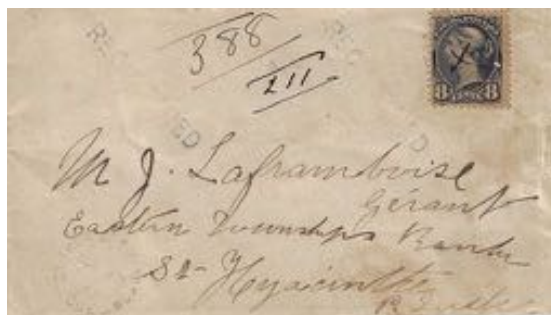 388
211
8 8
REG
ED
M J. Laframboise
Gérant
Eastern Townships Bank
St- Hyacinthe
P. Quebec